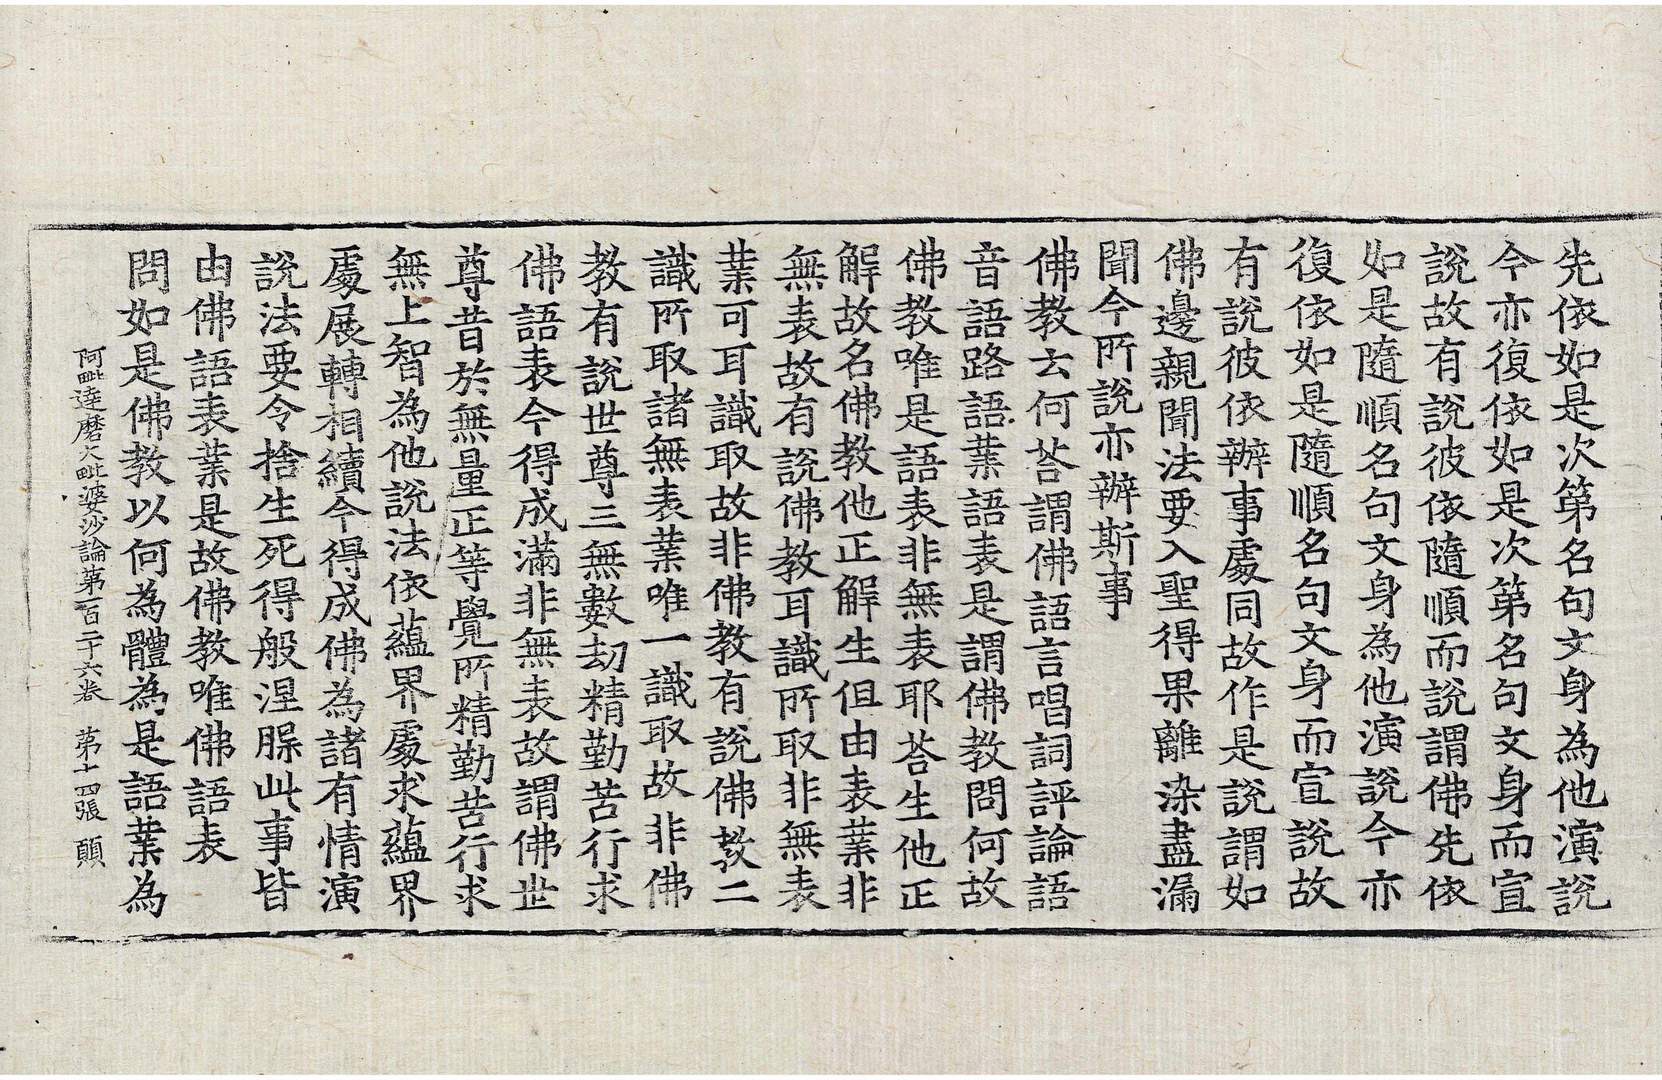 先依如是次第名句文身為他演說
今亦復依如是次第名句文身而宣
說故有說彼依隨順而說謂佛先依
如是隨順名句文身為他演說今亦
復依如是隨順名句文身而宣說故
有說彼依辦事處同故作是說謂如
佛邊親聞法要入聖得果離染盡漏
聞今所說亦辦斯事
佛教云何荅謂佛語言唱詞評論語
音語路語業語表是謂佛教問何故
佛教唯是語表非無表耶荅生他正
解故名佛教他正解生但由表業非
無表故有說佛教耳識所取非無表
業可耳識取故非佛教有說佛教二
識所取諸無表業唯一識取故非佛
教有說世尊三無數劫精勤苦行求
佛語表今得成滿非無表故謂佛世
尊昔於無量正等覺所精勤苦行求
無上智為他說法依蘊界處求蘊界
處展轉相續今得成佛為諸有情演
說法要令捨生死得般涅脲此事皆
由佛語表業是故佛教唯佛語表
問如是佛教以何為體為是語業為
阿毗達磨大毗婆沙論第一百二十六卷 第十四張 願